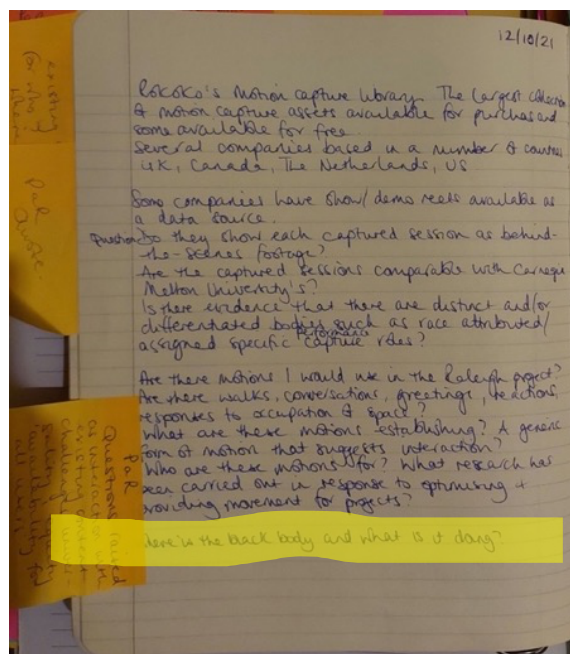 12/10/21
Rokoko's Motion capture library. The largest collection
of motion capture assets available for purchase and
some available for free.
Several companies based in a number of countries
UK, Canada, The Netherlands, US
Some companies have show/demo reels available as
a data source.
Question Do they show each captured session as behind-
the-scenes footage?
Are the captured sessions comparable with Carnegie
Mellon University's?
Is there evidence that there are distinct and/or
differentiated bodies such as race attributed/
assigned specific performance capture roles?
Are there motions I would use in the Raleigh project?
Are there walks, conversations, greetings, reactions,
responses to occupation of space?
What are these motions establishing? A generic
form of motion that suggests interaction?
Who are these motions for? What research has
been carried out in response to optimising +
providing movement for projects?
Where is the black body and what is it doing?
existing
for who
them
PaR
Quote.
PaR
Questions raised
as interaction with
existing content
availability for
all users